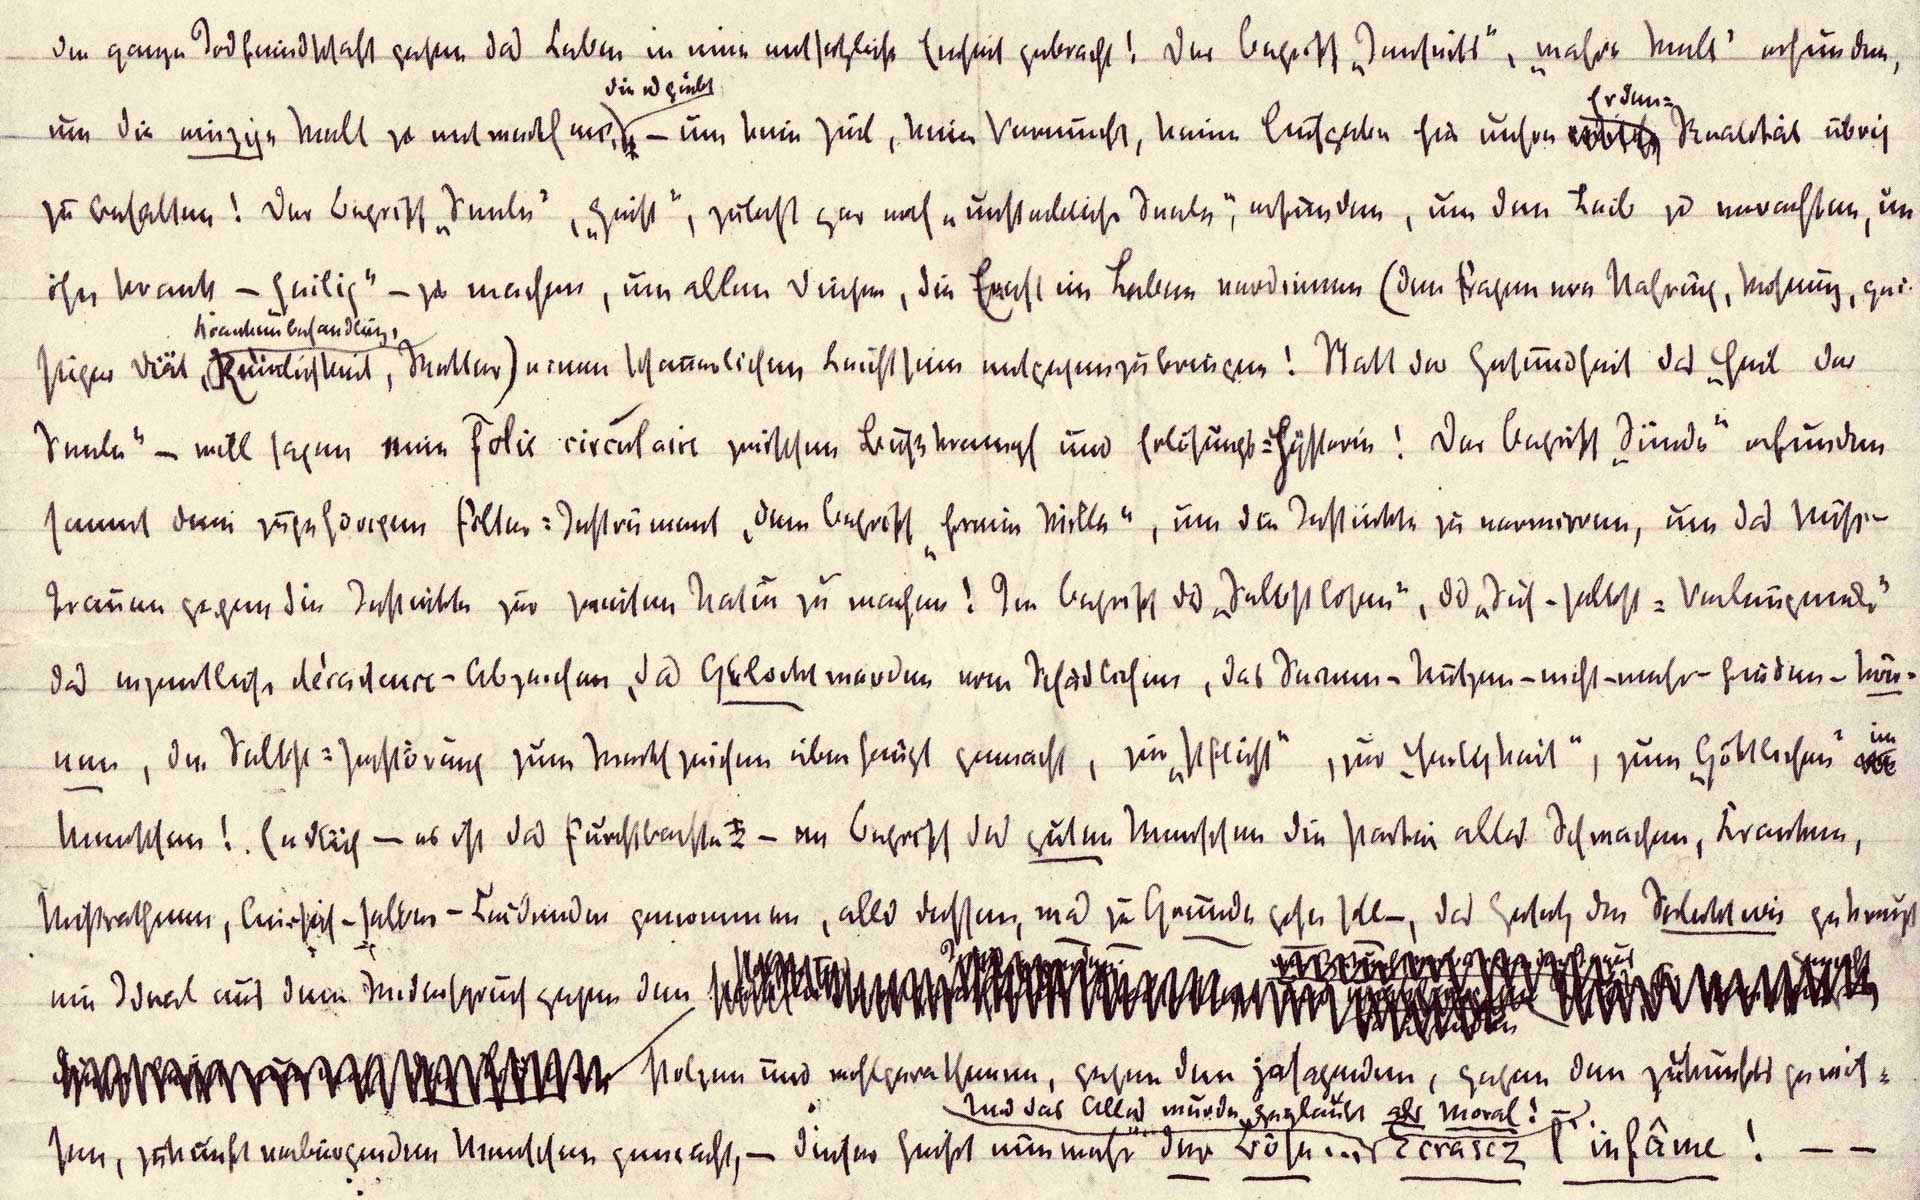 die ganze Todfeindschaft gegen das Leben in eine entsetzliche Einheit gebracht! Der Begriff „Jenseits“, „wahre Welt“ erfunden,
die es giebt
Erden=
um die einzige Welt zu entwerthen, – um kein Ziel, keine Vernunft, keine Aufgabe für unsre Realität übrig
zu behalten! Der Begriff „Seele“, „Geist“, zuletzt gar noch „unsterbliche Seele“, erfunden, um den Leib zu verachten, um
ihn krank – „heilig“ – zu machen, um allen Dingen, die Ernst im Leben verdienen (den Fragen von Nahrung, Wohnung, gei-
Krankenbehandlung,
stiger Diät, Reinlichkeit, Wetter) einen schauerlichen Leichtsinn entgegenzubringen! Statt der Gesundheit das „Heil der
Seele“ – will sagen eine folie circulaire zwischen Bußkrampf und Erlösungs=Hysterie! Der Begriff „Sünde“ erfunden
sammt dem zugehörigen Folter=Instrument, dem Begriff „freier Wille“, um die Instinkte zu verwirren, um das Miß-
trauen gegen die Instinkte zur zweiten Natur zu machen! Im Begriff des „Selbstlosen“, des „Sich-selbst=Verleugnenden“
das eigentliche décadence-Abzeichen, das Gelocktwerden vom Schädlichen, das Seinen-Nutzen-nicht-mehr-finden-kön=
nen, die Selbst=Zerstörung zum Werthzeichen überhaupt gemacht, zur „Pflicht“, zur „Heiligkeit“, zum „Göttlichen“ im
Menschen! Endlich – es ist das Furchtbarste – im Begriff des guten Menschen die Partei alles Schwachen, Kranken,
Mißrathnen, An-sich-selber-Leidenden genommen, alles dessen, was zu Grunde gehn soll –, das Gesetz der Selektion gekreuzt
ein Ideal aus dem Widerspruch gegen den
stolzen und wohlgerathenen, gegen den jasagenden, gegen den zukunftsgewis=
Und das Alles wurde geglaubt als Moral! –
sen, zukunftverbürgenden Menschen gemacht, – dieser heißt nunmehr der Böse... Ecrasez l'infâme! – –